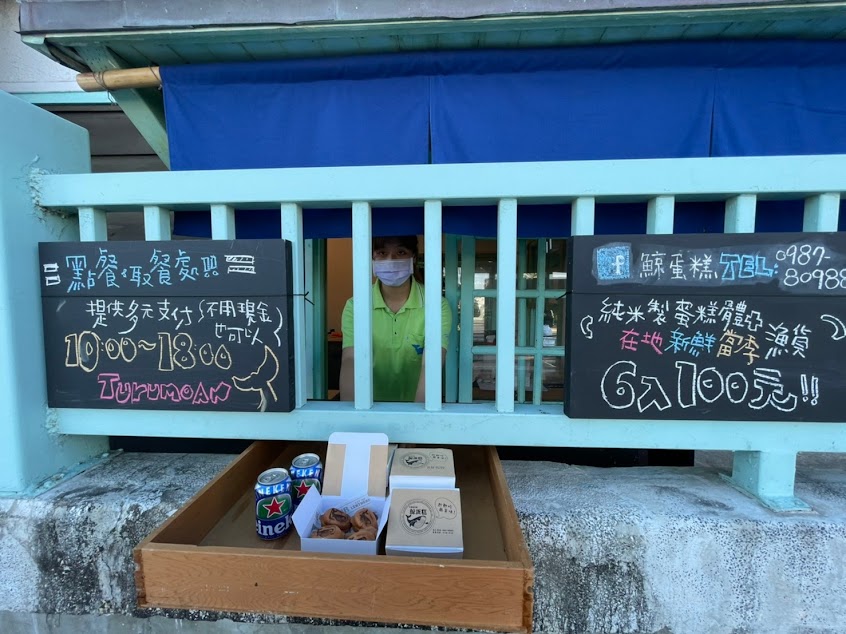 點餐、取餐處!!!
提供多元支付(不用現金
也可以)
10:00~18:00
TURUMOAN
f 鯨蛋糕 TEL: 0987-
80988
純米製蛋糕體
在地 新鮮 當季 漁貨
6入100元!!
Heineken
鯨蛋糕